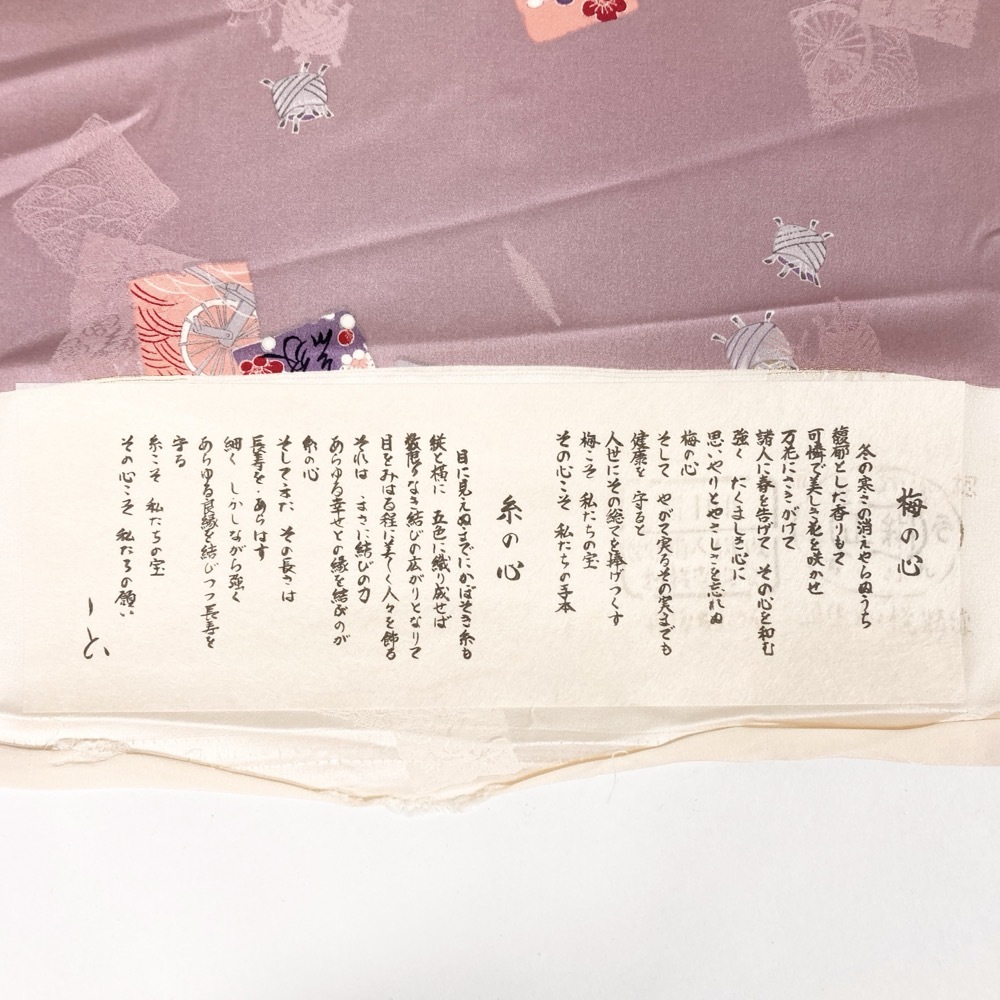 梅の心
冬の寒さの消えやらぬうち
馥郁とした香りもて
可憐で美しき花を咲かせ
万花にさきがけて
諸人に春を告げて その心を和む
強く たくましき心に
思いやりとやさしさを忘れぬ
梅の心
そして やがて実るその実までも
健康を 守ると
人世にその総てを捧げつくす
梅こそ 私たちの宝
その心こそ 私たちの手本
糸の心
目に見えぬまでにかぼそき糸も
縦と横に 五色に織り成せば
数限りなき結びの広がりとなりて
目をみはる程に美くしく人々を飾る
それは まさに結びの力
あらゆる幸せとの縁を結びのが
糸の心
そしてまた その長さは
長寿を あらはす
細く しかしながら強く
あらゆる良縁を結びつつ長寿を
守る
糸こそ 私たちの宝
その心こそ 私たちの願い